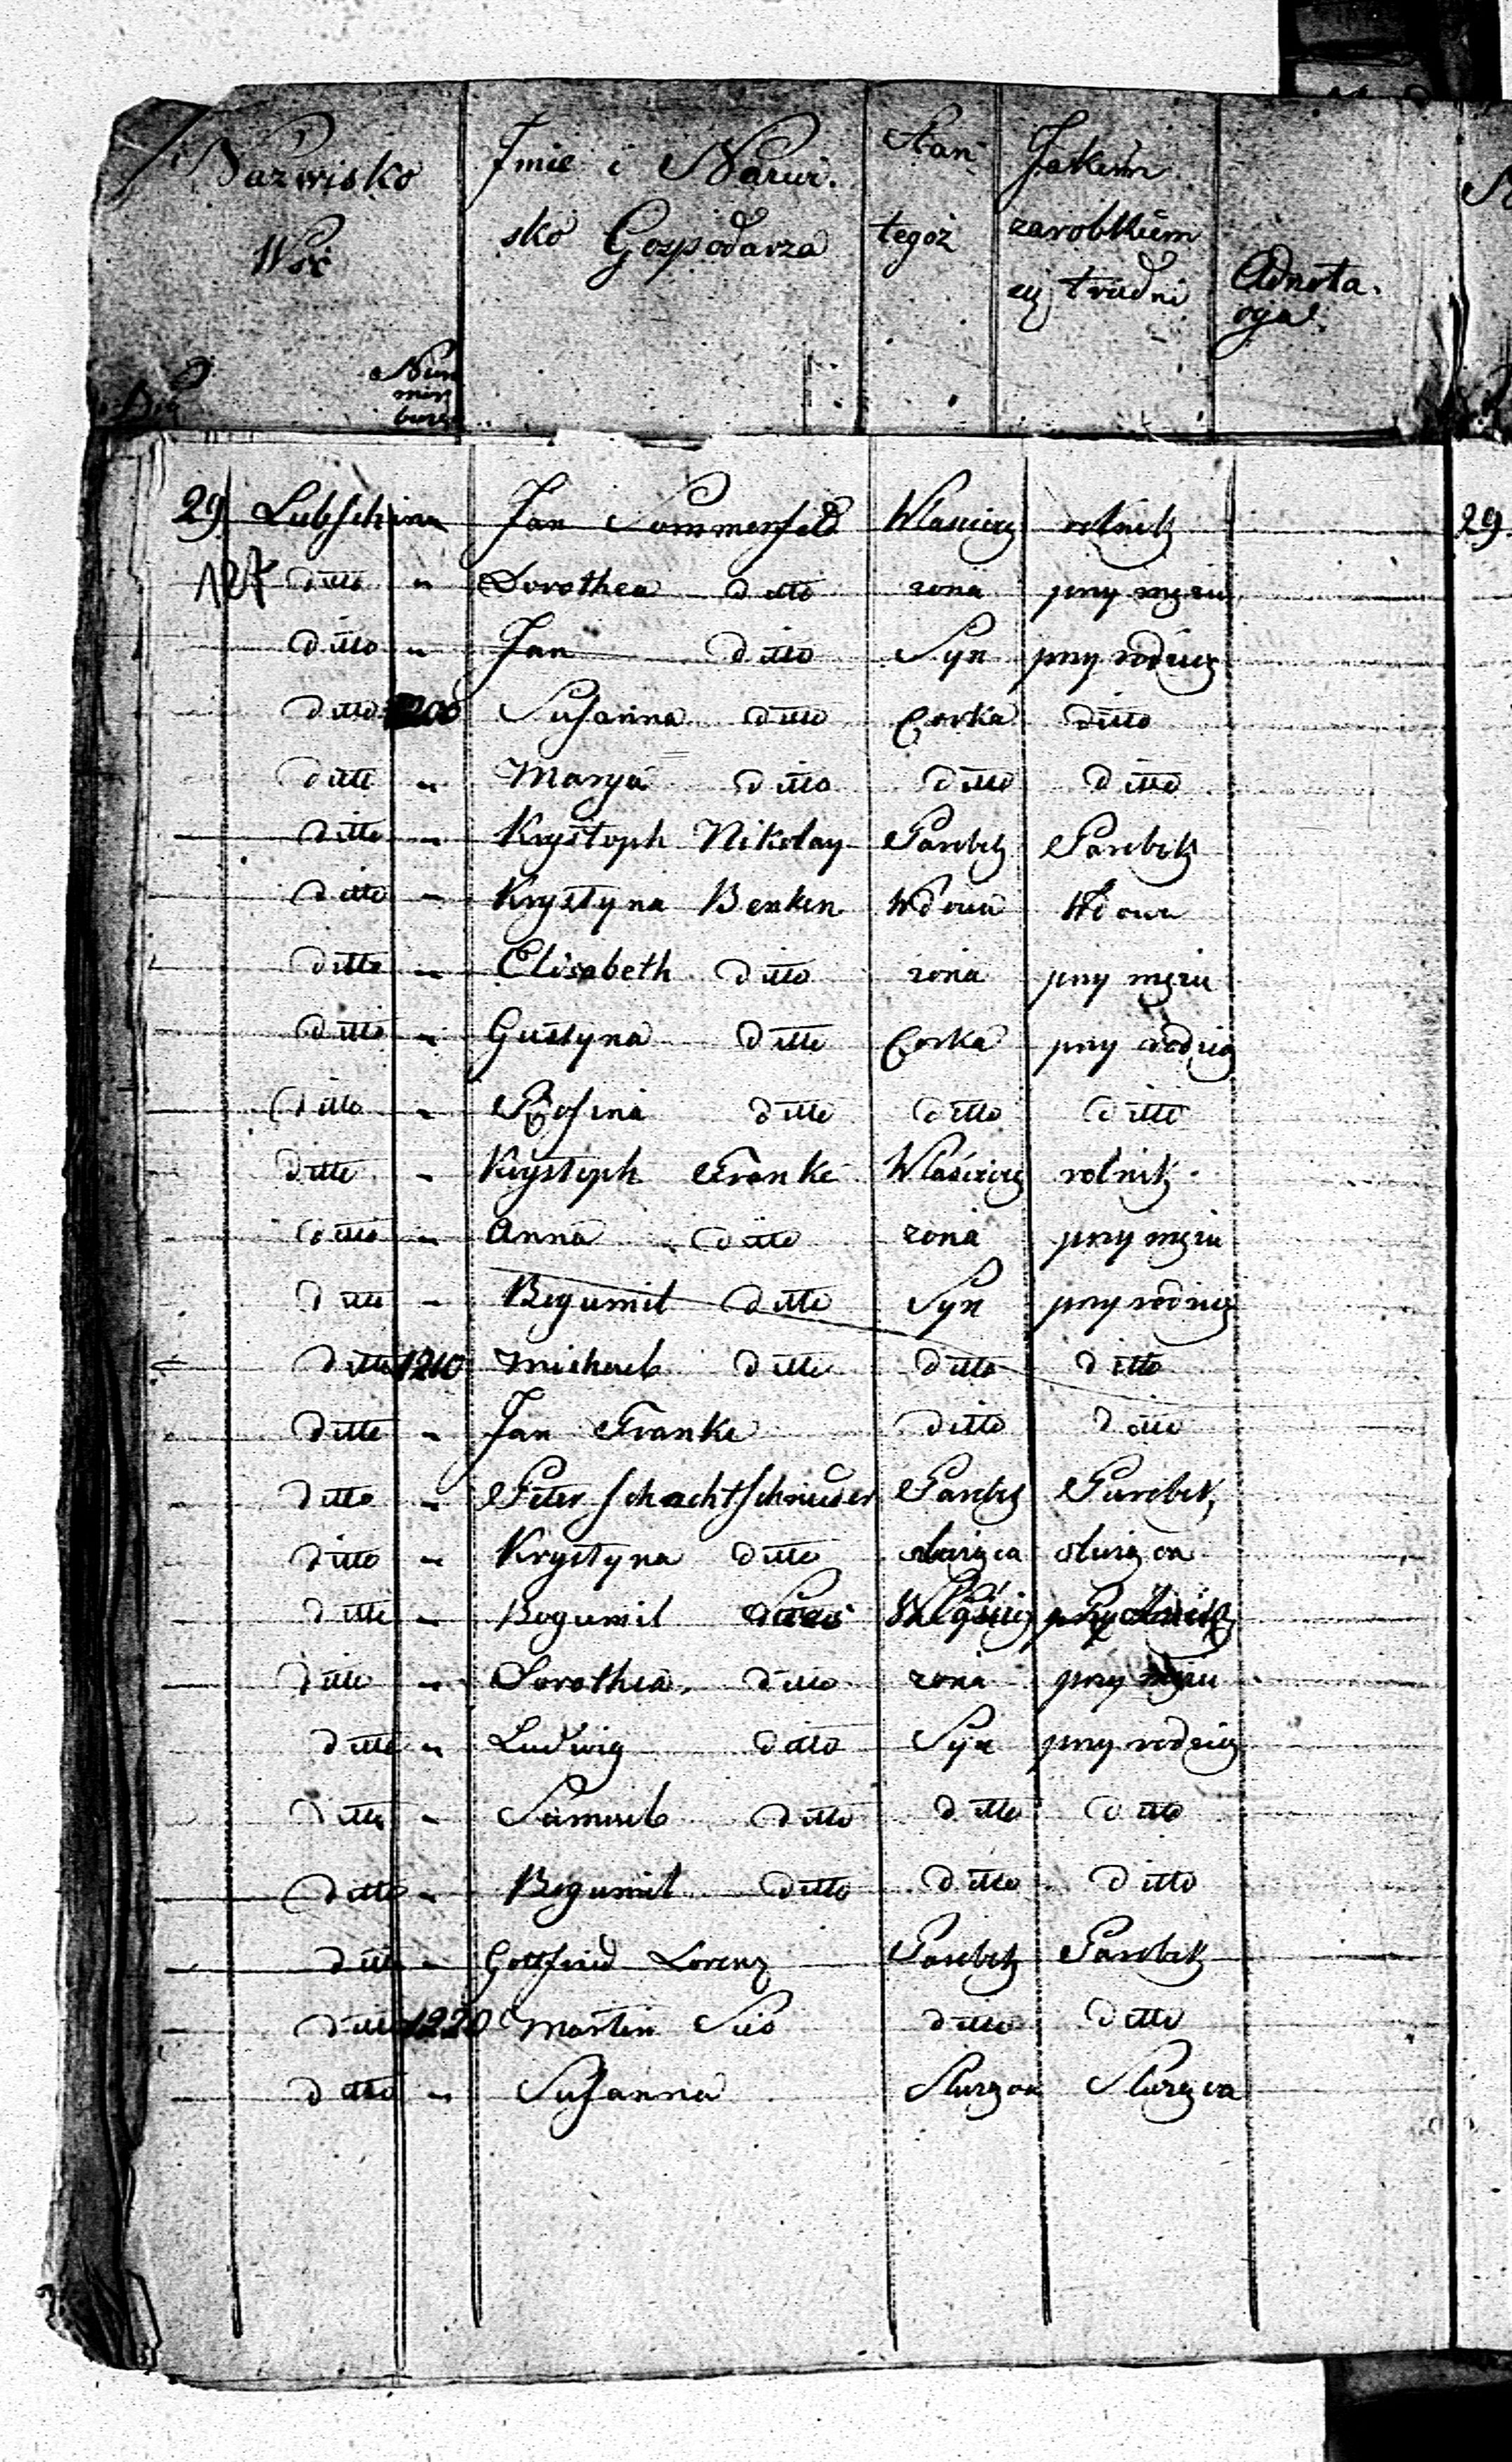 Nazwisko Wsi
Num
mer
Imie i Nazwi.
sko Gospodarza
Stan
tegoż
Jakiem
zarobkiem
trudni
Adnota.
cya
29 Lubschina Jan Sommerfeld Wlasciciel rolnik
127 ditto " Dorothea ditto zona przy mężu
ditto " Jan ditto Syn przy rodzic
ditto 1200 Susanna ditto Corka ditto
ditto " Marya ditto ditto ditto
ditto " Krystoph Nikolay Parobek Parobek
ditto " Krystyna Benken Wdowa Wdowa
ditto " Elisabeth ditto zona przy mężu
ditto " Gustyna ditto Corka przy rodzic
ditto " Rosina ditto ditto ditto
ditto " Krystoph Franke Właściciel rolnik
ditto " Anna ditto zona przy mężu
ditto " Bogumil ditto Syn przy rodzic
ditto 1210 Michael ditto ditto ditto
ditto " Jan Franke ditto ditto
ditto " Peter Schachtschneider Parobek Parobek
ditto " Krystyna ditto służąca służąca
ditto " Bogumil Właściciel
ditto " Dorothea ditto zona przy mężu
ditto " Ludwig ditto Syn przy rodzic
ditto " Samuel ditto ditto ditto
ditto " Bogumil ditto ditto ditto
ditto " Gottfried Lorenz Parobek Parobek
ditto 1220 Martin ditto ditto
ditto " Susanna Służąca Służąca
29